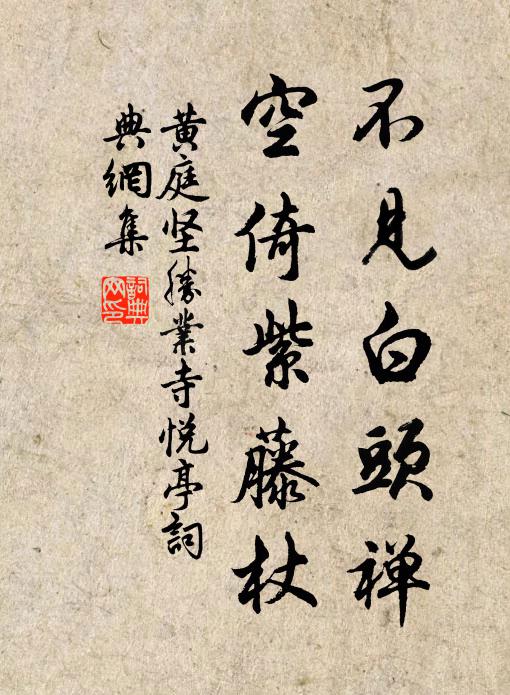 不見白頭禅
空倚紫藤杖
黄庭坚勝業寺悅亭詞
典網集
詞典
网印